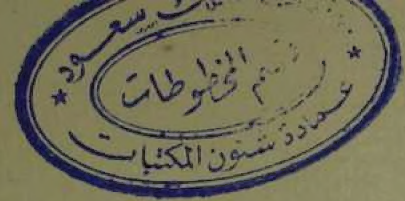 سعود
قسم المخطوطات
عمادة شئون المكتبات